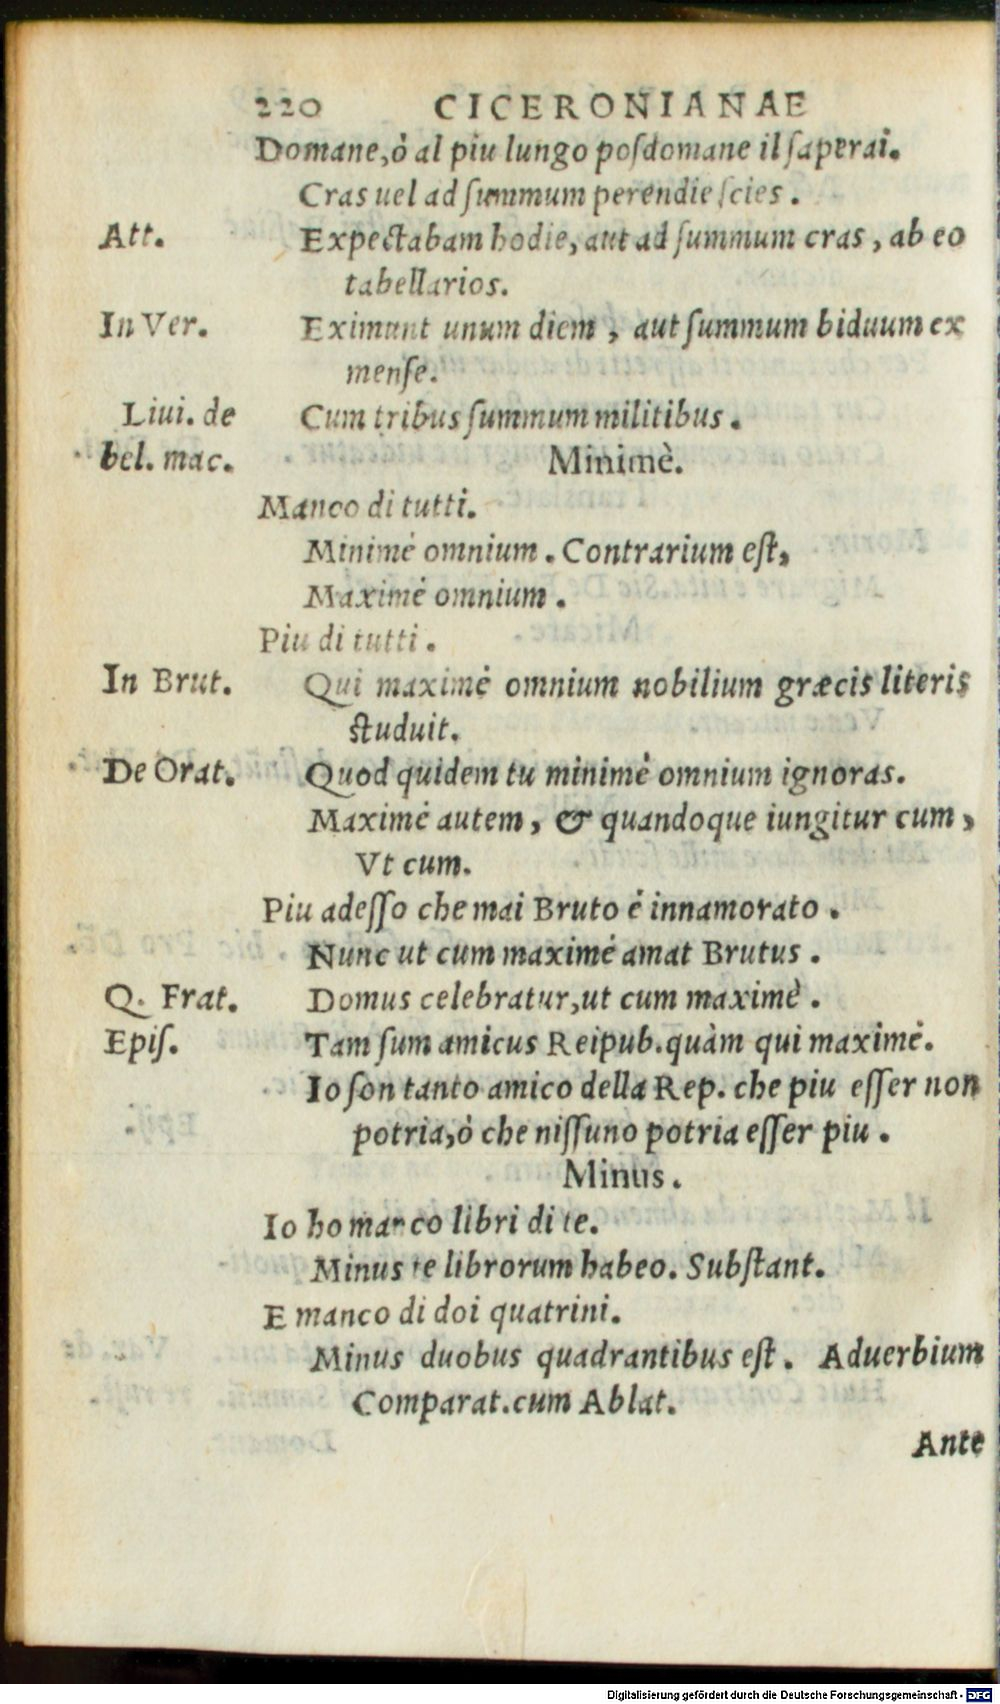 220 CICERONIANAE
Domane, ò al piu lungo posdomane il saperai.
Cras uel ad summum perendie scies.
Att. Expectabam hodie, aut ad summum cras, ab eo
tabellarios.
In Ver. Eximant unum diem, aut summum biduum ex
mense.
Liui. de Cum tribus summum militibus.
bel. mac. Minimè.
Manco di tutti.
Minimè omnium. Contrarium est,
Maximè omnium.
Piu di tutti.
In Brut. Qui maximè omnium nobilium græcis literis
studuit.
De Orat. Quod quidem tu minimè omnium ignoras.
Maximè autem, & quandoque iungitur cum,
Vt cum.
Piu adesso che mai Bruto è innamorato.
Nunc ut cum maximè amat Brutus.
Q. Frat. Domus celebratur, ut cum maximè.
Epis. Tam sum amicus Reipub. quàm qui maximè.
Io son tanto amico della Rep. che piu esser non
potria, ò che nissuno potria esser piu.
Minus.
Io ho manco libri di te.
Minus te librorum habeo. Substant.
E manco di doi quatrini.
Minus duobus quadrantibus est. Aduerbium
Comparat. cum Ablat.
Ante
Digitalisierung gefördert durch die Deutsche Forschungsgemeinschaft - DFG